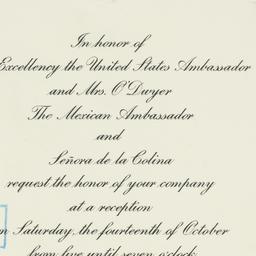 In honor of
Excellency the United States Ambassador
and Mrs. O'Dwyer
The Mexican Ambassador
and
Señora de la Colina
request the honor of your company
at a reception
on Saturday, the fourteenth of October
from five until seven o'clock